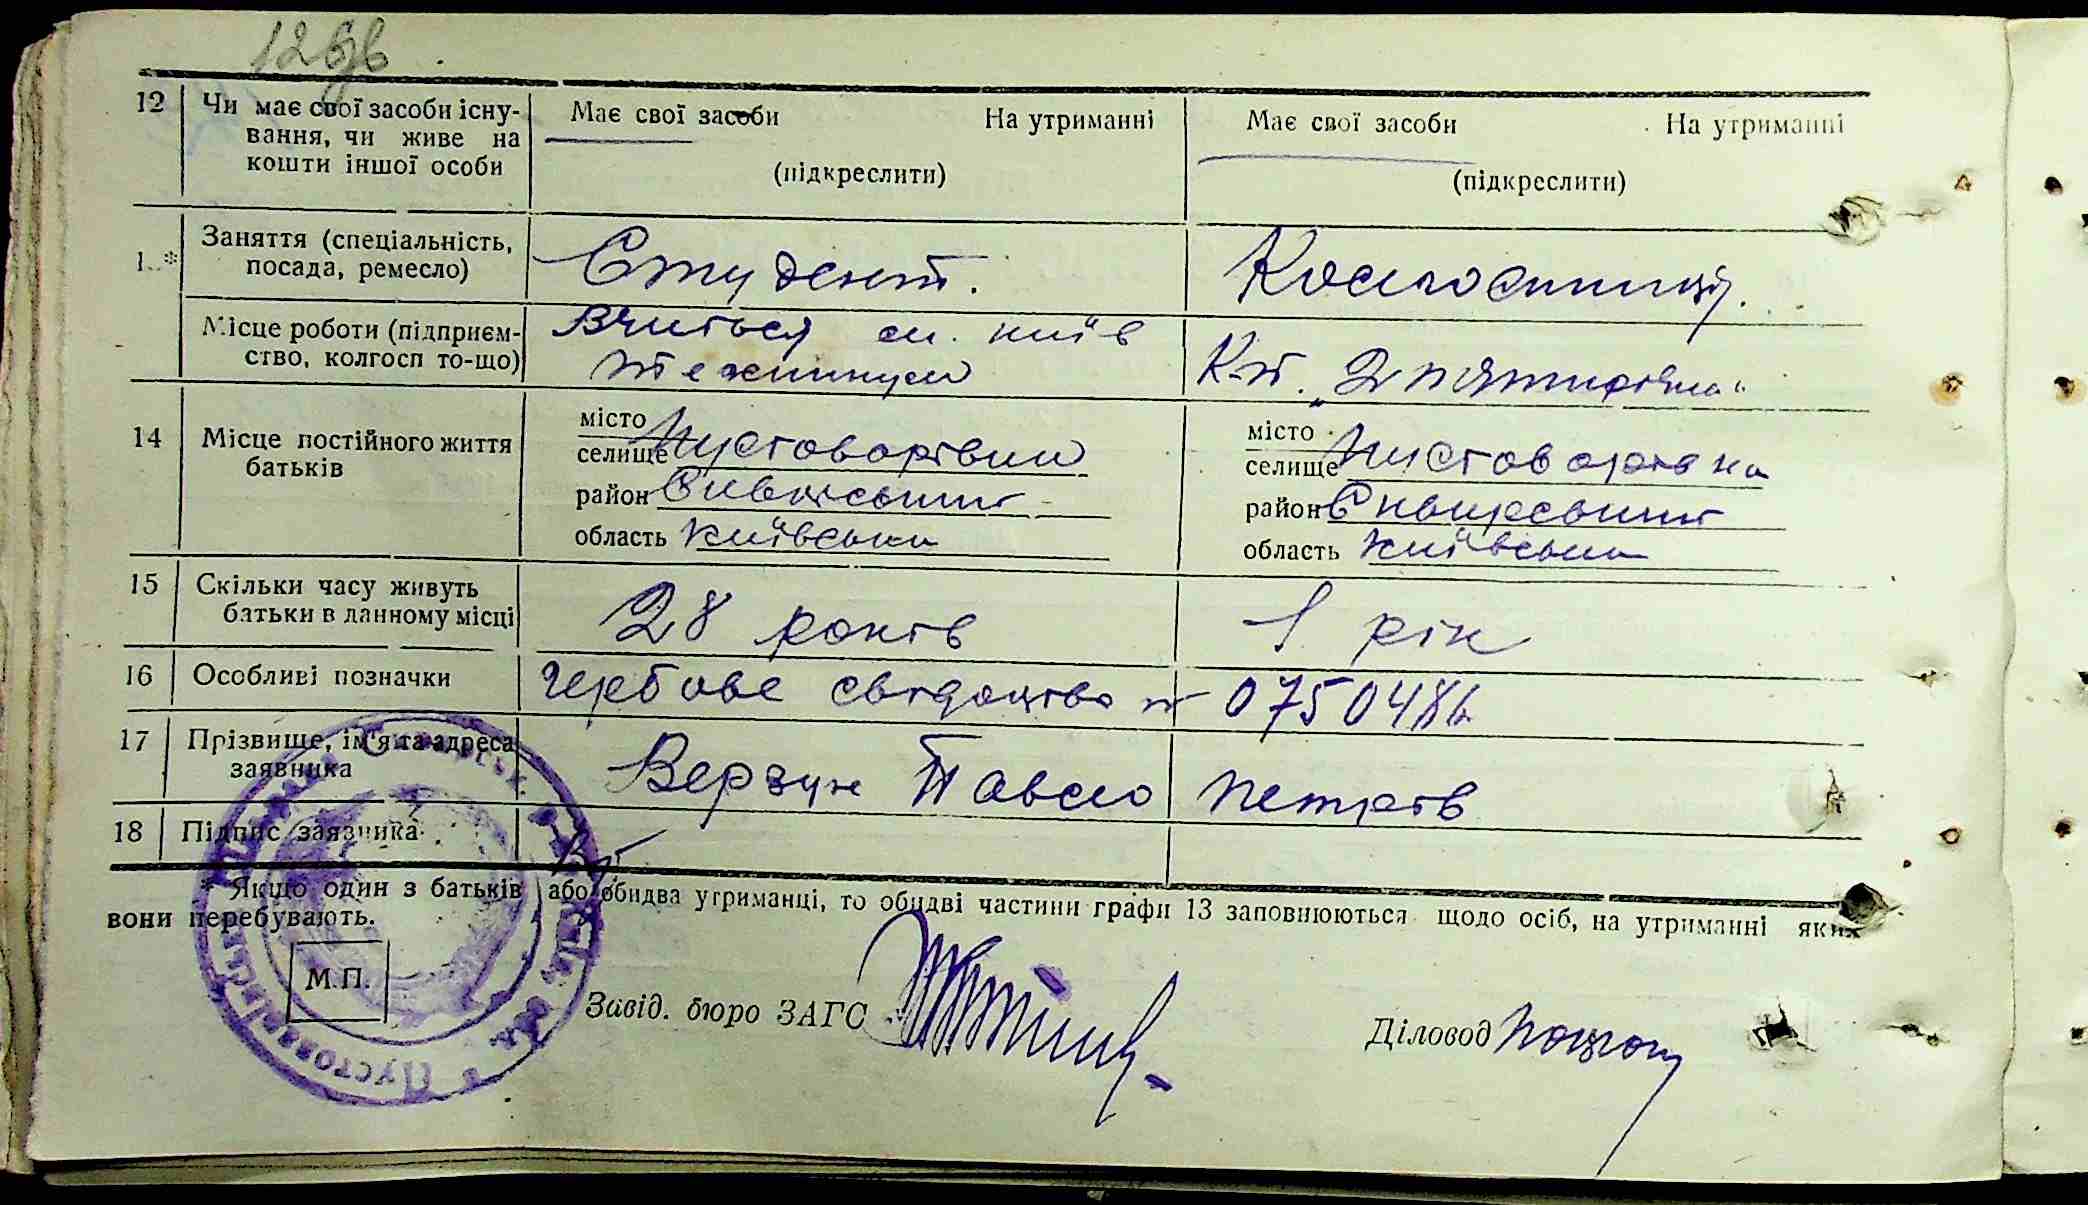 126
12 Чи має свої засоби існу-
вання, чи живе на
кошти іншої особи
Має свої засоби На утриманні
(підкреслити)
Має свої засоби На утриманні
(підкреслити)
1..* Заняття (спеціальність,
посада, ремесло)
Студент.
Колгоспниця.
Місце роботи (підприєм-
ство, колгосп то-що)
Вчиться м. Київ
технікум
К-т. „2 п'ятирічка“
14 Місце постійного життя
батьків
місто
селище Пустоварівка
район Сквирський
область Київська
місто
селище Пустоварівка
район Сквирський
область Київська
15 Скільки часу живуть
батьки в данному місці
28 років
1 рік
16 Особливі позначки
гербове свідоцтво № 0750486
17 Прізвище, ім'я та адреса
заявника
Верзун Павло Петров
18 Підпис заявника
* Якщо один з батьків або обидва утриманці, то обидві частини графи 13 заповнюються щодо осіб, на утриманні яких
вони перебувають.
М.П.
Завід. бюро ЗАГС
Діловод